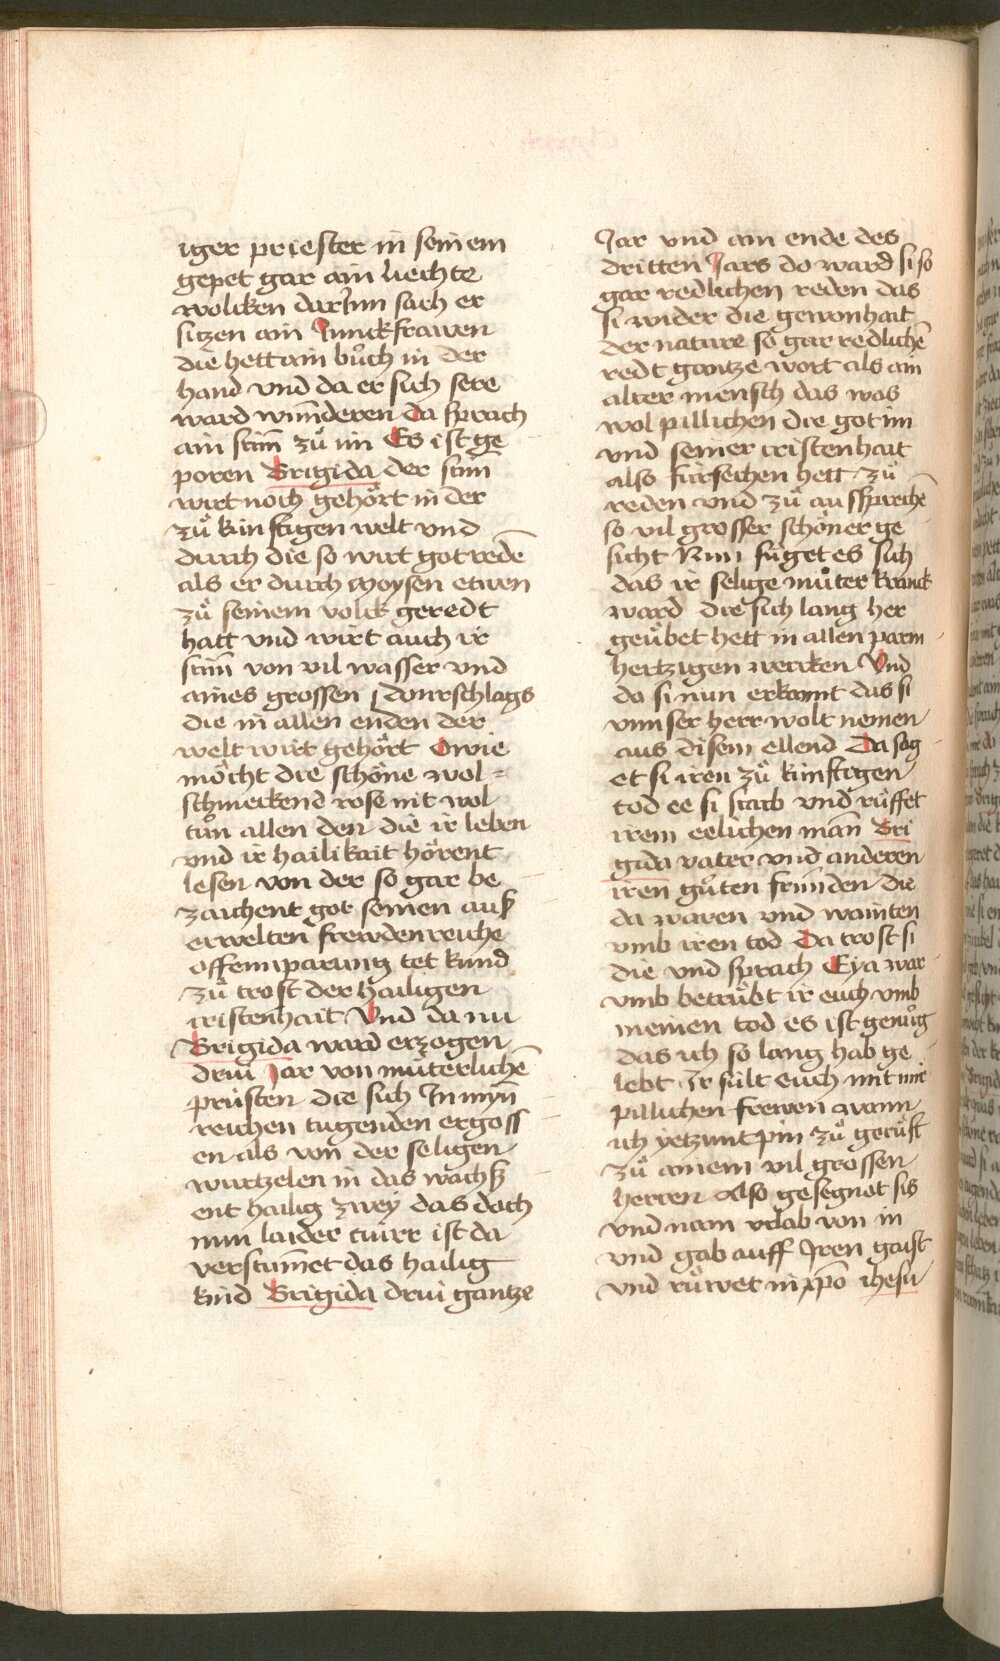 iger priester in seinem
gepet gar ain liechte
wolcken darInn sach er
sitzen ain Junckfrawen
die hett ain bůch in der
hand vnd da er sich sere
ward wunnderen da sprach
ain stim̄ zů im Es ist ge
poren Brigida der stim̄
wirt noch gehört in der
zů künftigen welt vnd
durch die so wirt got redē
als er durch moysen etwen
zů seinem volck geredt
hatt vnd wirt auch ir
stim̄ von vil wasser vnd
aines grossen donrschlags
die in allen enden der
welt wirt gehört Owie
möcht die schöne wol =
schmeckend rose nit wol
tůn allen den die ir leben
vnd ir hailikait hörent
lesen von der so gar be
zaichent got seinen auß
erwelten frewdenreiche
offemparung tet kund
zů trost der hailigen
cristenhait Vnd da nu
Brigida ward erzogen
drüi Jar von můterlichē
prüsten die sich Inmyn̄
reichen tugenden ergoss
en als von der seligen
wurtzelen in das wachß
ent hailig zwey das doch
nun laider tiurr ist da
verstum̄et das hailig
kind Brigida drüi gantze
Jar vnd am ende des
dritten Jars do ward si so
gar redlichen reden das
si wider die gewonhait
der nature so gar redlichē
redt gantze wort als ain
alter mensch das was
wol pillichen die got im
vnd seiner cristenhait
also fürsechen hett zů
reden vnd zů aussprechē
so vil grosser schöner ge
sicht Nun füget es sich
das ir selige můter kranck
ward die sich lang her
geübet hett in allen parm
hertzigen wercken Vnd
da si nun erkannt das si
vnnser herr wolt nemen
aus disem ellend Da sag
et si iren zů künftigen
tod ee si starb vnd rüffet
irem eelichen man̄ Bri
gida vater vnd anderen
iren gůten frůnden die
da waren vnd wainten
vmb iren tod Da trost si
die vnd sprach Eya war
vmb betrübt ir euch vmb
meinen tod es ist genůg
das ich so lang hab ge
lebt Ir sült euch mit mir
pillichen frewen wann
ich yetzunt pin zů gerüst
zů ainem vil grossen
herren Also gesegnet sis
vnd nam vrlab von in
vnd gab auff Iren gaist
vnd růwet in xp̄o ihesu